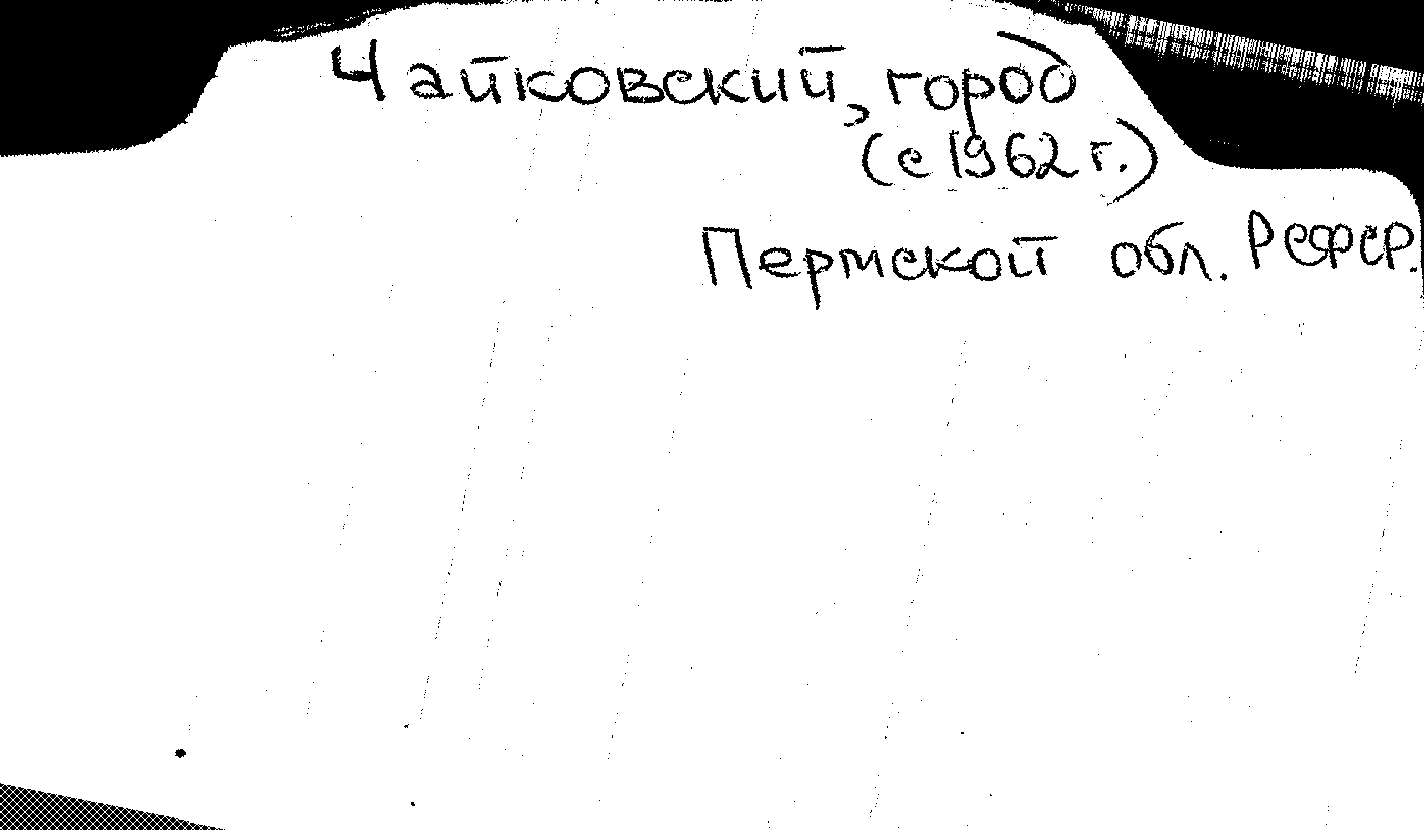 Чайковский, город
(с 1962 г.)
Пермской обл. Рефер.